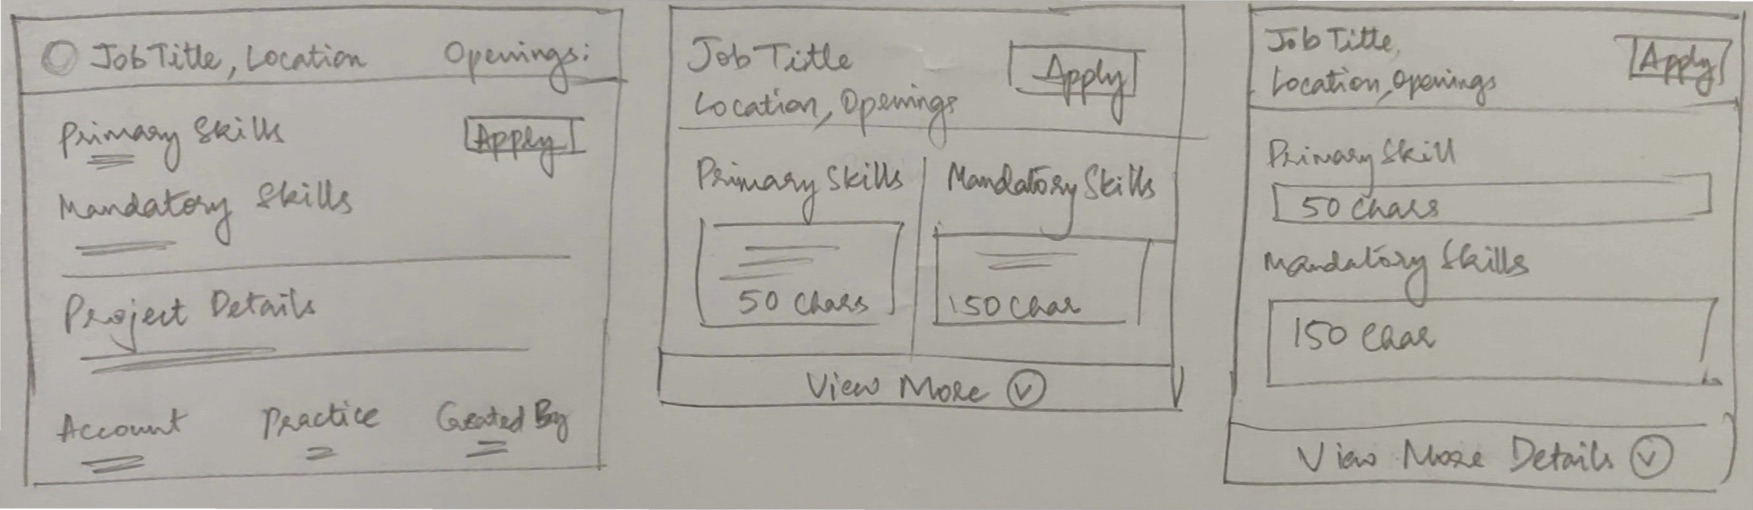 Job Title, Location Openings:
Primary Skills
Apply
Mandatory Skills
Project Details
Account Practice Created By
Job Title
Location, Openings
Apply
Primary Skills Mandatory Skills
50 Chars 150 Char
View More
Job Title,
Location, Openings
Apply
Primary Skill
50 Chars
Mandatory Skills
150 Char
View More Details